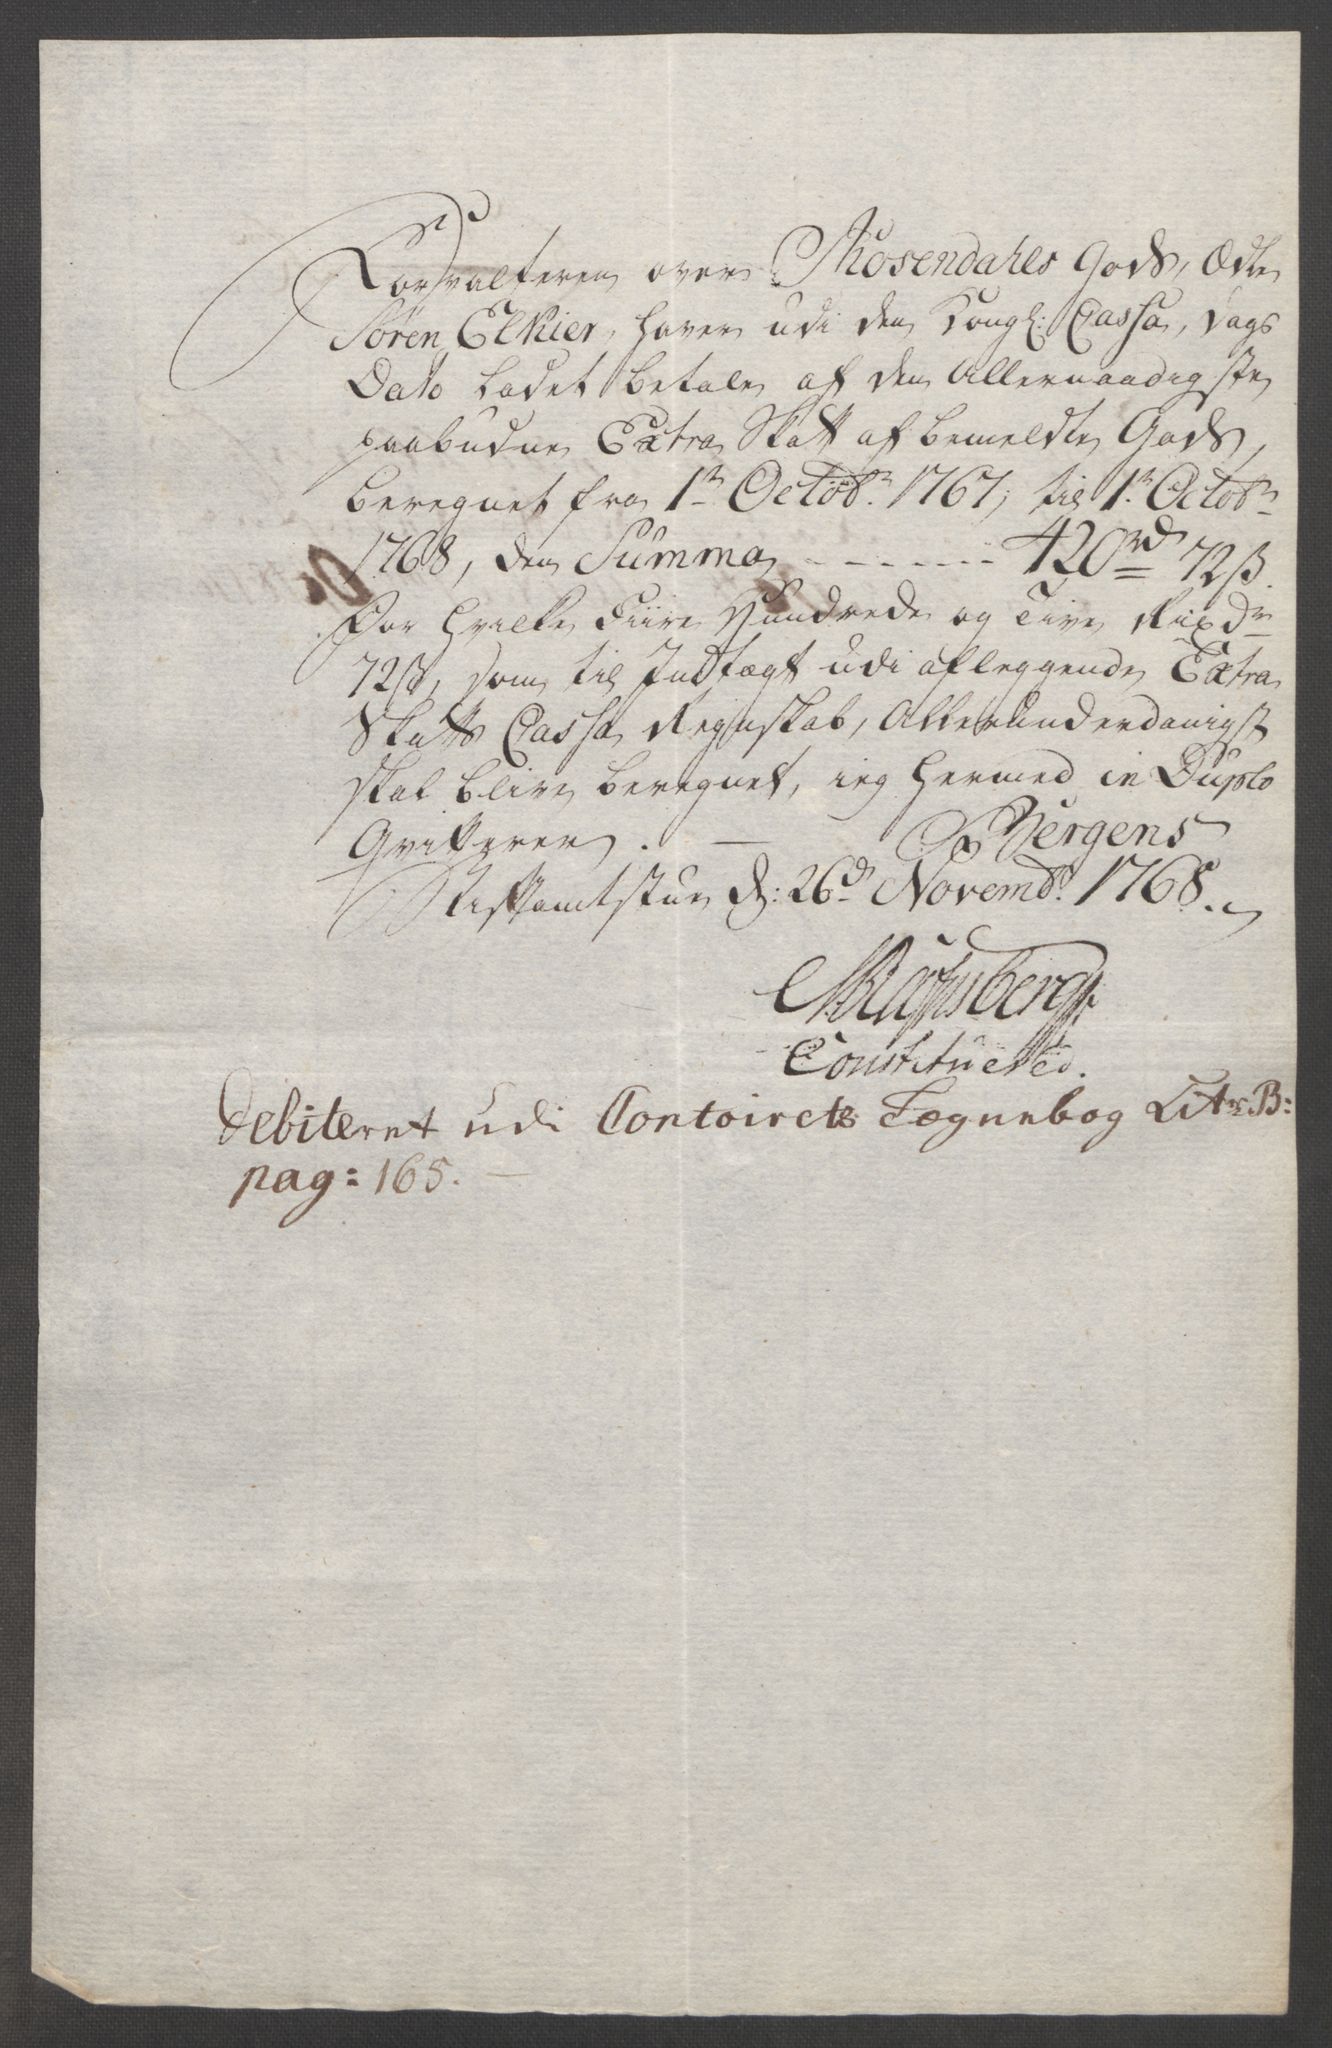 Forvalteren over Rosendahls Gods, Ædle
Søren Elkier, haver udi den Kongl: Cassa, Dags
Dato ladet betale af den Allernaadigste
paabudne Extra Skatt af bemeldte Gods,
beregnet fra 1te Octobr. 1767, til 1te Octobr
1768, den Summa - - - - - - - 420 rd 72 ß.
For hvilke Fiire Hundrede og Tive Rixdr
72 ß, som til Indtægt udi aflæggende Extra
Skatts Cassa Regnskab, Allerunderdanigst
skal blive beregnet, ieg hermed in Duplo
Qvitterer. — Bergens
Stiftamtstue d: 26de Novembr. 1768.
Constituered.
Debiteret udi Contoirets Tegnebog Litr. B:
pag: 165. —